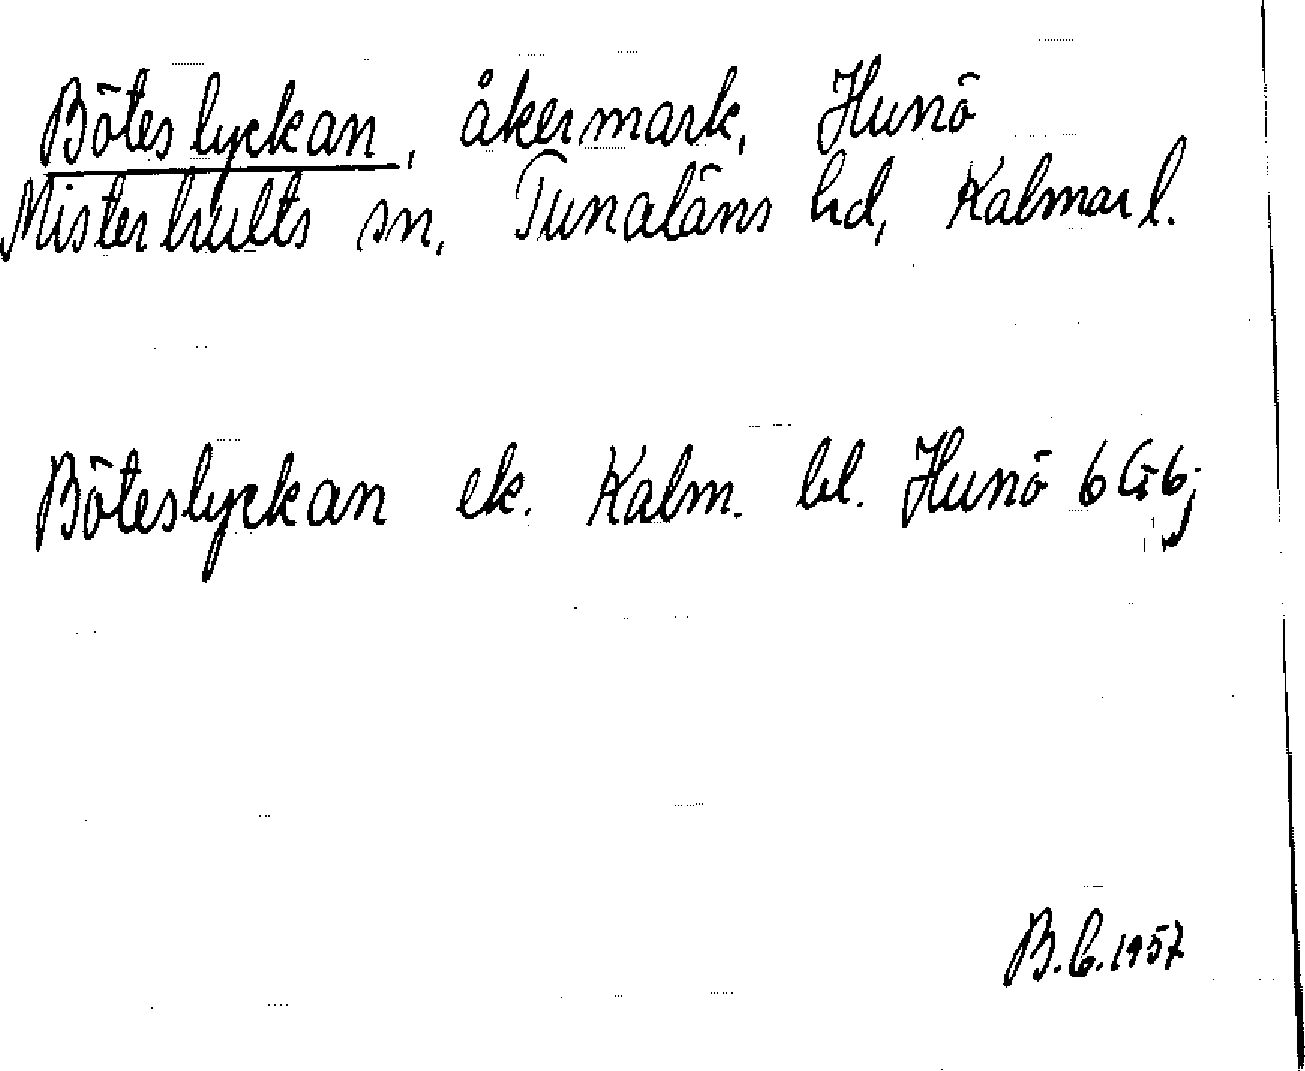 Böteslyckan, åkermark, Hunö
Misterhults sn, Tunaläns hd, Kalmar l.
Böteslyckan ek. Kalm. bl. Hunö 6 G 6j
B.C. 1957